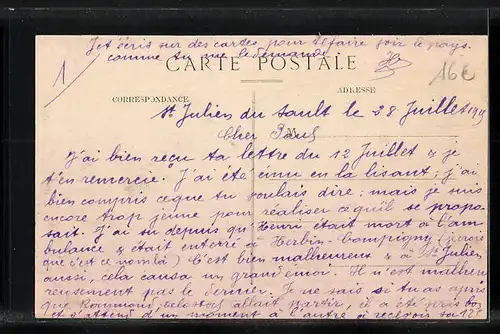 Je t'écris sur des cartes pour te faire voir le pays.
comme tu me le demandes.
1
16€
CARTE POSTALE
CORRESPONDANCE
ADRESSE
St Julien du Sault le 28 Juillet 19
Cher Paul
M
J'ai bien reçu ta lettre du 12 Juillet & je
t'en remercie. J'ai été ému en la lisant; j'ai
bien compris ce que tu voulais dire; mais je suis
encore trop jeune pour réaliser ce qu'il se propo-
sait. J'ai su depuis qu'Henri était mort à l'am-
bulance & était enterré à Herbin-Campigny (je crois
que c'est ce nom là) C'est bien malheureux & à St Julien
aussi, cela causa un grand émoi. Il n'est malheu-
reusement pas le dernier. Je ne sais si tu as appris
que Raymond allait partir, il a été pris bon
et s'attend d'un moment à l'autre à recevoir sa